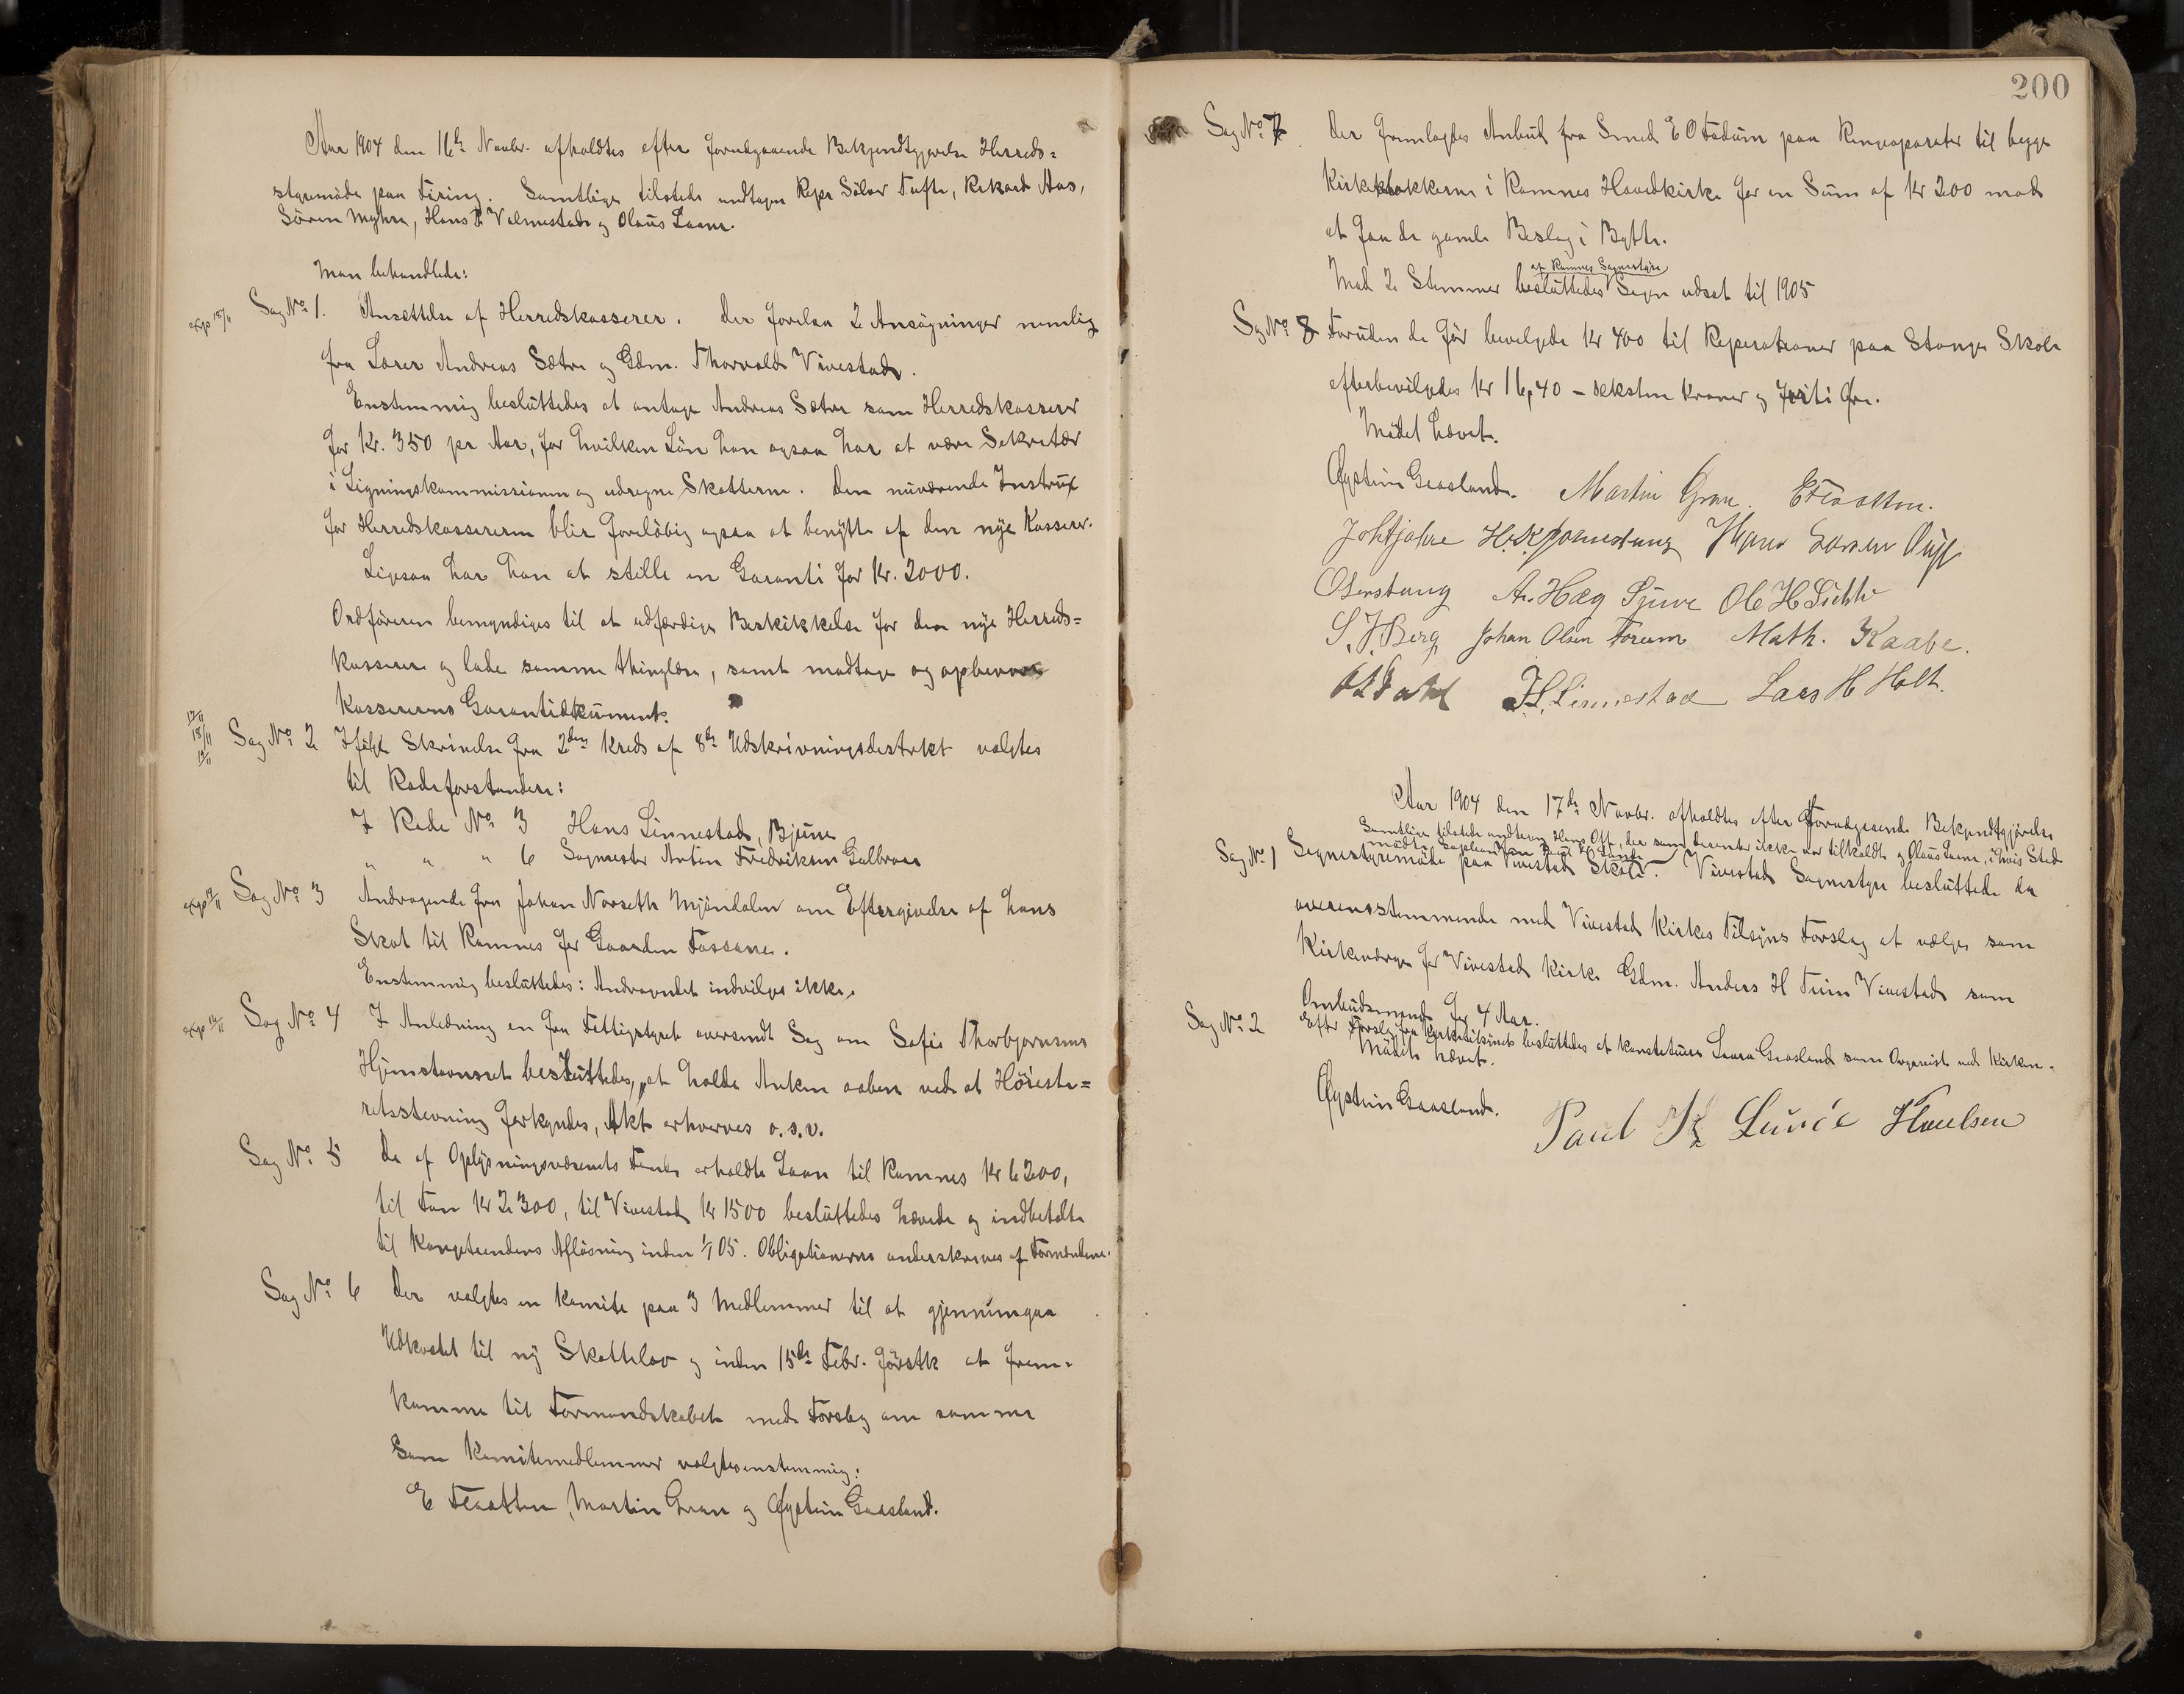 Aar 1904 den 16de Novbr. afholdtes efter forudgaaende Bekjendtgjørelse Herreds=
styremøde paa Firing. Samtlige tilstede undtagen Repr Sølver Tufte, Rikard Aas,
Søren Myhre, Hans P. Valmestad og Olaus Laane.
Man behandlede:
exp 18/11 Sag No 1. Ansættelse af Herredskasserer. Der forelaa 2 Ansøgninger nemlig
fra Lærer Andreas Sætre og Gdm. Thorvald Vivestad.
Enstemmig besluttedes at antage Andreas Sætre som Herredskasserer
for Kr. 350 pr Aar, for hvilken Løn han ogsaa har at være Sekretær
i Ligningskommissionen og udregne Skatterne. Den nuværende Instrux
for Herredskassereren blir foreløbig ogsaa at benytte af den nye Kasserer.
Ligesaa har han at stille en Garanti for Kr. 2000.
Ordføreren bemyndiges til at udfærdige Beskikkelse for den nye Herreds=
kasserer og lade samme thinglæse, samt modtage og opbevare
Kassererens Garantidokument.
Sag No 2 Ifølge Skrivelse fra 2den Kreds af 8de Udskrivningsdestrikt valgtes
til Rodeforstandere:
I Rode No 3 Hans Linnestad, Bjune
" " " 6 Sagmester Anton Fredriksen Gulbraar
exp 19/11 Sag No 3 Andragende fra Johan Norseth Mjøndalen om Eftergivelse af hans
Skat til Ramnes for Gaarden Fossane.
Enstemmig besluttedes: Andragendet indvilges ikke.
exp 19/11 Sag No 4 I Anledning en fra Fattigstyret oversendt Sag om Sofie Thorbjørnsens
Hjemstavnsret besluttedes, at holde Anken aaben ved at Høieste=
retsstevning forkyndes, Akt erhverves o.s.v.
Sag No 5 De af Oplysningsvæsenets Fond erholdte Laan til Ramnes Kr 6200,
til Fon Kr 2300, til Vivestad Kr 1500 besluttedes hævede og indbetalte
til Kongetiendens Afløsning inden 1/1 05. Obligationerne underskrives af Formændene.
Sag No 6 Der valgtes en Komite paa 3 Medlemmer til at gjennemgaa
Udkastet til ny Skattelov og inden 15de Febr. førstk at frem=
komme til Formandskabet med Forslag om samme
Som Komitemedlemmer valgtes enstemmig:
E Flaatten, Martin Gran og Øystein Gaasland.
200
Sag No 7. Der fremlagdes Anbud fra Smed E O Fadum paa Ringeaparater til begge
Kirkeklokkerne i Ramnes Hovedkirke for en Sum af Kr 200 mod
at faa de gamle Beslag i Bytte.
af Ramnes Sognestyre
Med 2 Stemmer besluttedes Sagen udsat til 1905
Sag No 8 Foruden de før bevilgede Kr 400 til Reperationer paa Stange Skole
efterbevilgedes Kr 16,40 – seksten Kroner og forti Øre.
Mødet hævet.
Øystein Gaasland. Martin Gran. E Flaatten.
Hans Larsen
A. Hæg Ole H
S. J. Berg Johan Olsen Forum Math. Kaabe.
O L Dahl H. Linnestad Lars H Holt.
Aar 1904 den 17de Novbr. afholdtes efter Forudgaaende Bekjendtgjørelse
Samtlige tilstede undtagen Hans Oft, der som desenter ikke var tilkaldt og Olaus Laane, i hvis Sted
mødte Suplean
Sag No 1 Sognestyremøde paa Vivestad Skole. Vivestad Sognestyre besluttede da
overensstemmende med Vivestad Kirkes Tilsyns Forslag at vælge som
Kirkeværge for Vivestad Kirke Gdm. Anders H Tuin Vivestad som
Ombudsmand for 4 Aar.
Sag No 2 Efter Forslag fra Kirketilsinet besluttedes at konstetuere Laura Gaasland som Organist ved Kirken.
Mødet hævet.
Øystein Gaasland. Paul Paulsen